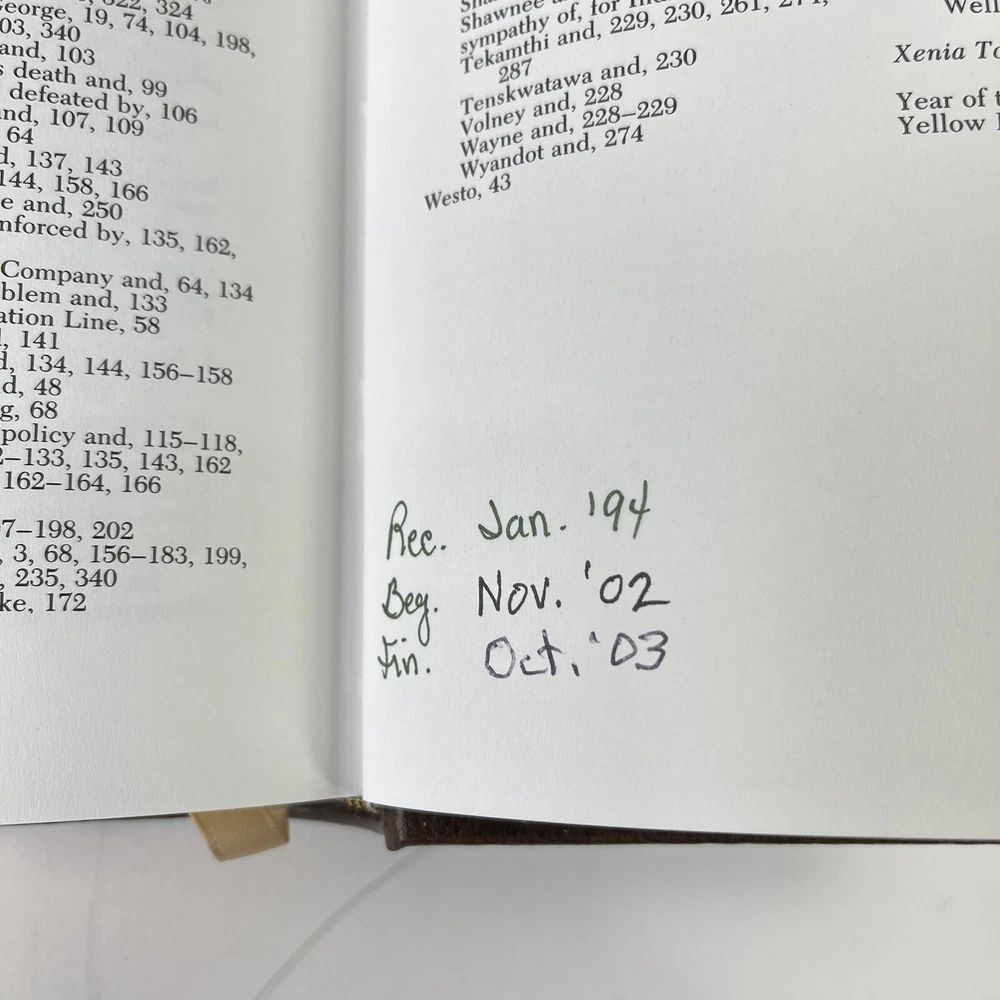 322, 324
George, 19, 74, 104, 198,
03, 340
and, 103
s death and, 99
defeated by, 106
and, 107, 109
64
d, 137, 143
144, 158, 166
e and, 250
nforced by, 135, 162,
Company and, 64, 134
blem and, 133
ation Line, 58
, 141
d, 134, 144, 156–158
d, 48
g, 68
policy and, 115–118,
2–133, 135, 143, 162
162–164, 166
7–198, 202
, 3, 68, 156–183, 199,
, 235, 340
ke, 172
Shawnee
sympathy of, for
Tekamthi and, 229, 230, 261, 274,
287
Tenskwatawa and, 230
Volney and, 228
Wayne and, 228–229
Wyandot and, 274
Westo, 43
Well
Xenia To
Year of t
Yellow
Rec. Jan. '94
Beg. Nov. '02
Fin. Oct. '03